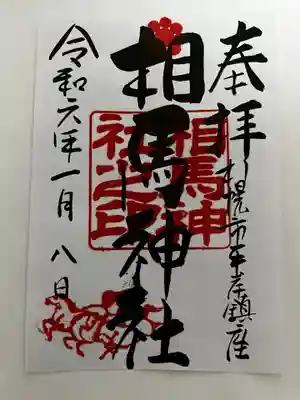 奉拝
札幌市平岸鎮座
相馬神社
相馬神社之印
令和六年一月八日